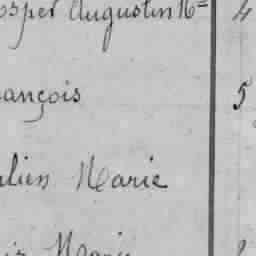 osper Augustin M= 4
ançois 5
ulien Marie
is Marie